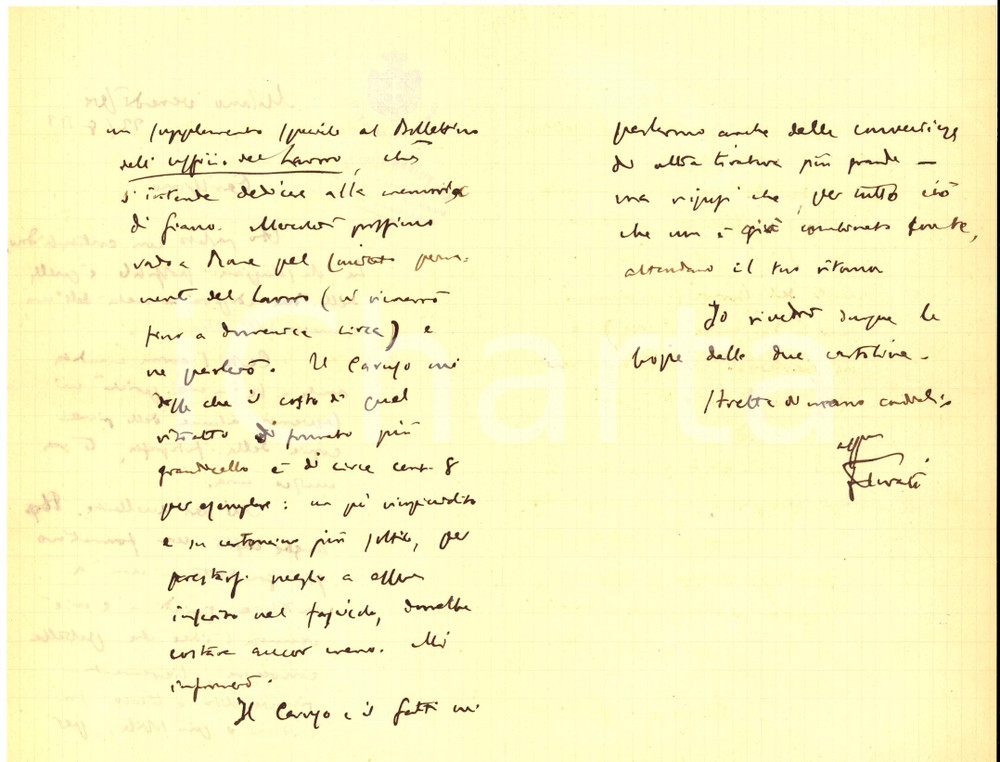 un supplemento speciale al Bollettino
dell'Ufficio del Lavoro, che
s'intende dedicare alla memoria
di Giano. Mercoledì prossimo
vado a Roma pel Comitato perma-
nente del Lavoro (vi rimarrò
fino a domenica circa) e
ne parlerò. Il Carugo mi
disse che il costo di quel
ritratto di formato più
grandicello è di circa cent. 8
per esemplare: un po' rimpicciolito
e su cartoncino più sottile, per
prestarsi meglio a essere
inserito nel fascicolo, dovrebbe
costare ancor meno. Mi
informerò.
Il Carugo e il Gatti mi
parlarono anche della convenienza
di altra tiratura più grande —
ma risposi che, per tutto ciò
che non è già combinato
attendano il tuo ritorno
Io rivedrò dunque le
copie delle due cartoline.
Stretta di mano cordialis
aff
F. Turati
Charta